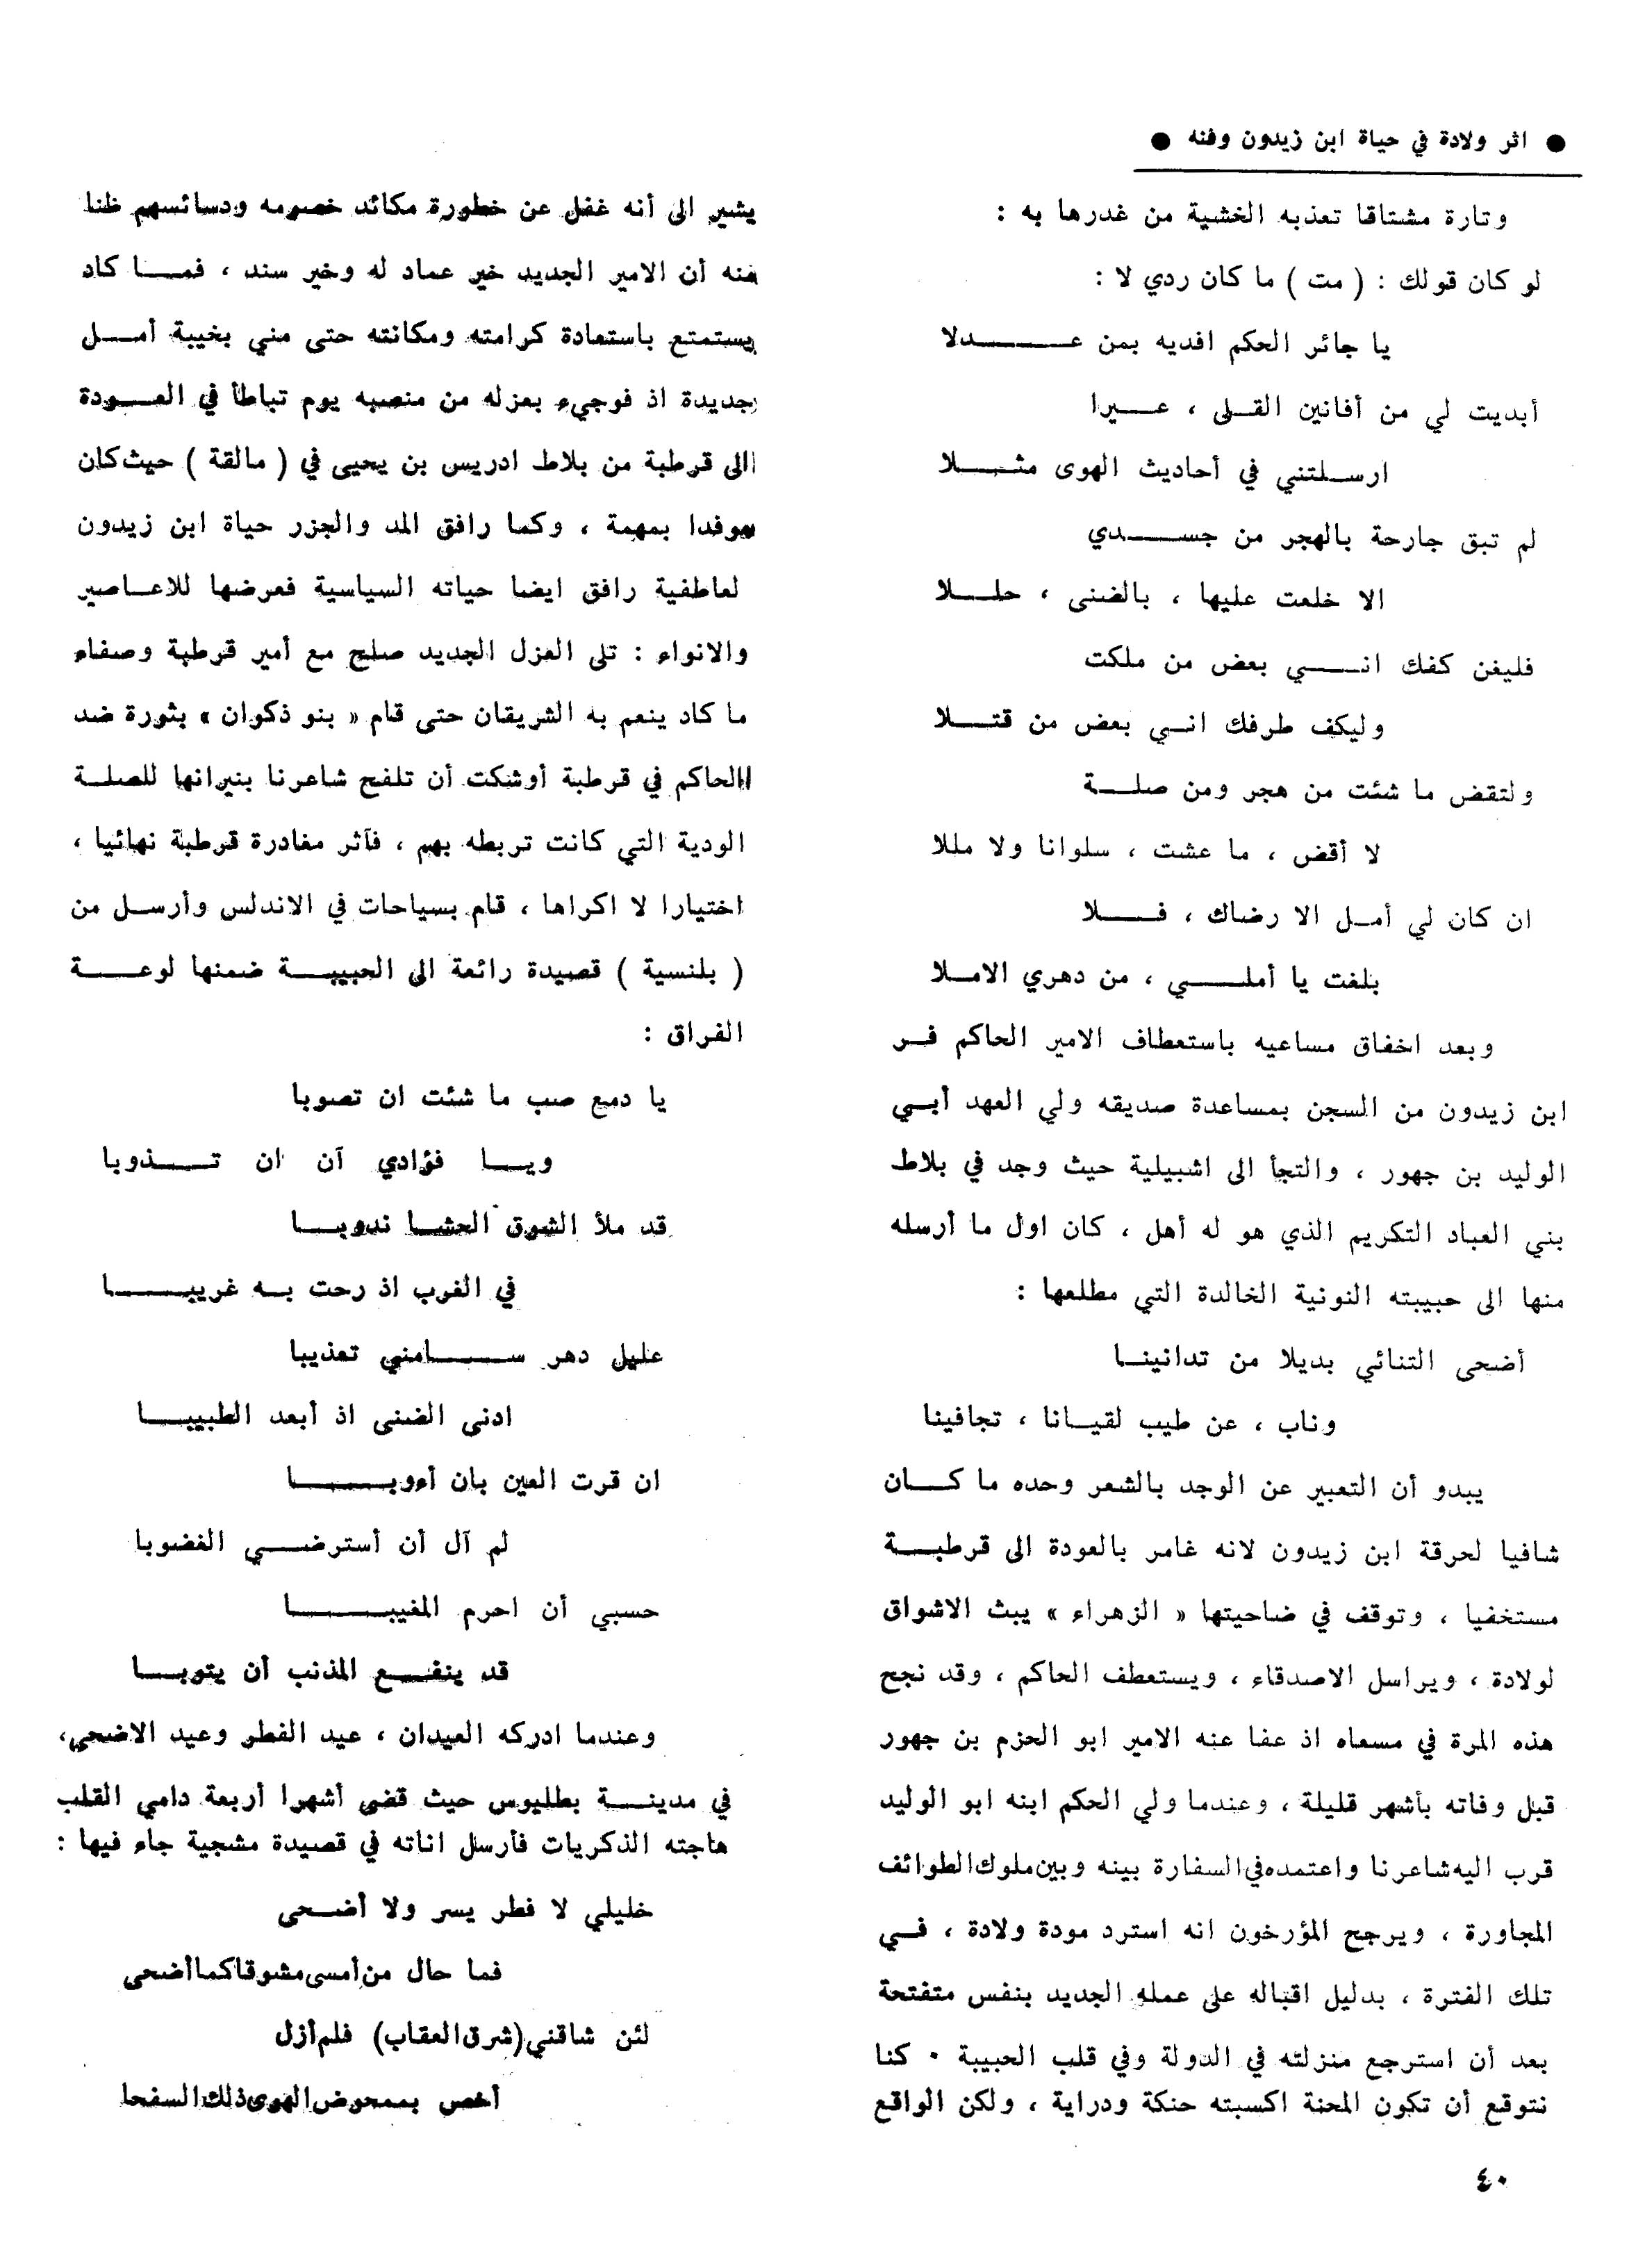 ● اثر ولادة في حياة ابن زيدون وفنه ●
وتارة مشتاقا تعذبه الخشية من غدرها به :
لو كان قولك : ( مت ) ما كان ردي لا :
يا جائر الحكم افديه بمن عدلا
أبديت لي من أفانين القلى ، عبرا
ارسلتني في أحاديث الهوى مثلا
لم تبق جارحة بالهجر من جسدي
الا خلعت عليها ، بالضنى ، حللا
فليغن كفك اني بعض من ملكت
وليكف طرفك اني بعض من قتلا
ولتقض ما شئت من هجر ومن صلة
لا أقض ، ما عشت ، سلوانا ولا مللا
ان كان لي أمل الا رضاك ، فلا
بلغت يا أملي ، من دهري الاملا
وبعد اخفاق مساعيه باستعطاف الامير الحاكم فر
ابن زيدون من السجن بمساعدة صديقه ولي العهد أبي
الوليد بن جهور ، والتجأ الى اشبيلية حيث وجد في بلاط
بني العباد التكريم الذي هو له أهل ، كان اول ما أرسله
منها الى حبيبته النونية الخالدة التي مطلعها :
أضحى التنائي بديلا من تدانينا
وناب ، عن طيب لقيانا ، تجافينا
يبدو أن التعبير عن الوجد بالشعر وحده ما كان
شافيا لحرقة ابن زيدون لانه غامر بالعودة الى قرطبة
مستخفيا ، وتوقف في ضاحيتها « الزهراء » يبث الاشواق
لولادة ، ويراسل الاصدقاء ، ويستعطف الحاكم ، وقد نجح
هذه المرة في مسعاه اذ عفا عنه الامير ابو الحزم بن جهور
قبل وفاته بأشهر قليلة ، وعندما ولي الحكم ابنه ابو الوليد
قرب اليه شاعرنا واعتمده في السفارة بينه وبين ملوك الطوائف
المجاورة ، ويرجح المؤرخون انه استرد مودة ولادة ، في
تلك الفترة ، بدليل اقباله على عمله الجديد بنفس متفتحة
بعد أن استرجع منزلته في الدولة وفي قلب الحبيبة ٠ كنا
نتوقع أن تكون المحنة اكسبته حنكة ودراية ، ولكن الواقع
يشير الى أنه غفل عن خطورة مكائد خصومه ودسائسهم ظنا
منه أن الامير الجديد خير عماد له وخير سند ، فما كاد
يستمتع باستعادة كرامته ومكانته حتى مني بخيبة أمل
جديدة اذ فوجيء بعزله من منصبه يوم تباطأ في العودة
الى قرطبة من بلاط ادريس بن يحيى في ( مالقة ) حيث كان
موفدا بمهمة ، وكما رافق المد والجزر حياة ابن زيدون
لعاطفية رافق ايضا حياته السياسية فعرضها للاعاصير
والانواء : تلى العزل الجديد صلح مع أمير قرطبة وصفاء
ما كاد ينعم به الشريقان حتى قام « بنو ذكوان » بثورة ضد
الحاكم في قرطبة أوشكت أن تلفح شاعرنا بنيرانها للصلة
الودية التي كانت تربطه بهم ، فآثر مغادرة قرطبة نهائيا ،
اختيارا لا اكراها ، قام بسياحات في الاندلس وأرسل من
( بلنسية ) قصيدة رائعة الى الحبيبة ضمنها لوعة
الفراق :
يا دمع صب ما شئت ان تصوبا
ويا فؤادي آن ان تذوبا
قد ملأ الشوق الحشا ندوبا
في الغرب اذ رحت به غريبا
عليل دهر سامني تعذيبا
ادنى الضنى اذ أبعد الطبيبا
ان قرت العين بان أءوبا
لم آل أن أسترضي الغضوبا
حسبي أن احرم المغيبا
قد ينفع المذنب أن يتوبا
وعندما ادركه العيدان ، عيد الفطر وعيد الاضحى،
في مدينة بطليوس حيث قضى أشهرا أربعة دامي القلب
هاجته الذكريات فأرسل اناته في قصيدة مشجية جاء فيها :
خليلي لا فطر يسر ولا أضحى
فما حال من أمسى مشوقا كما أضحى
لئن شاقني (شرق العقاب) فلم أزل
أخص بممحوض الهوى ذلك السفحا
٤٠